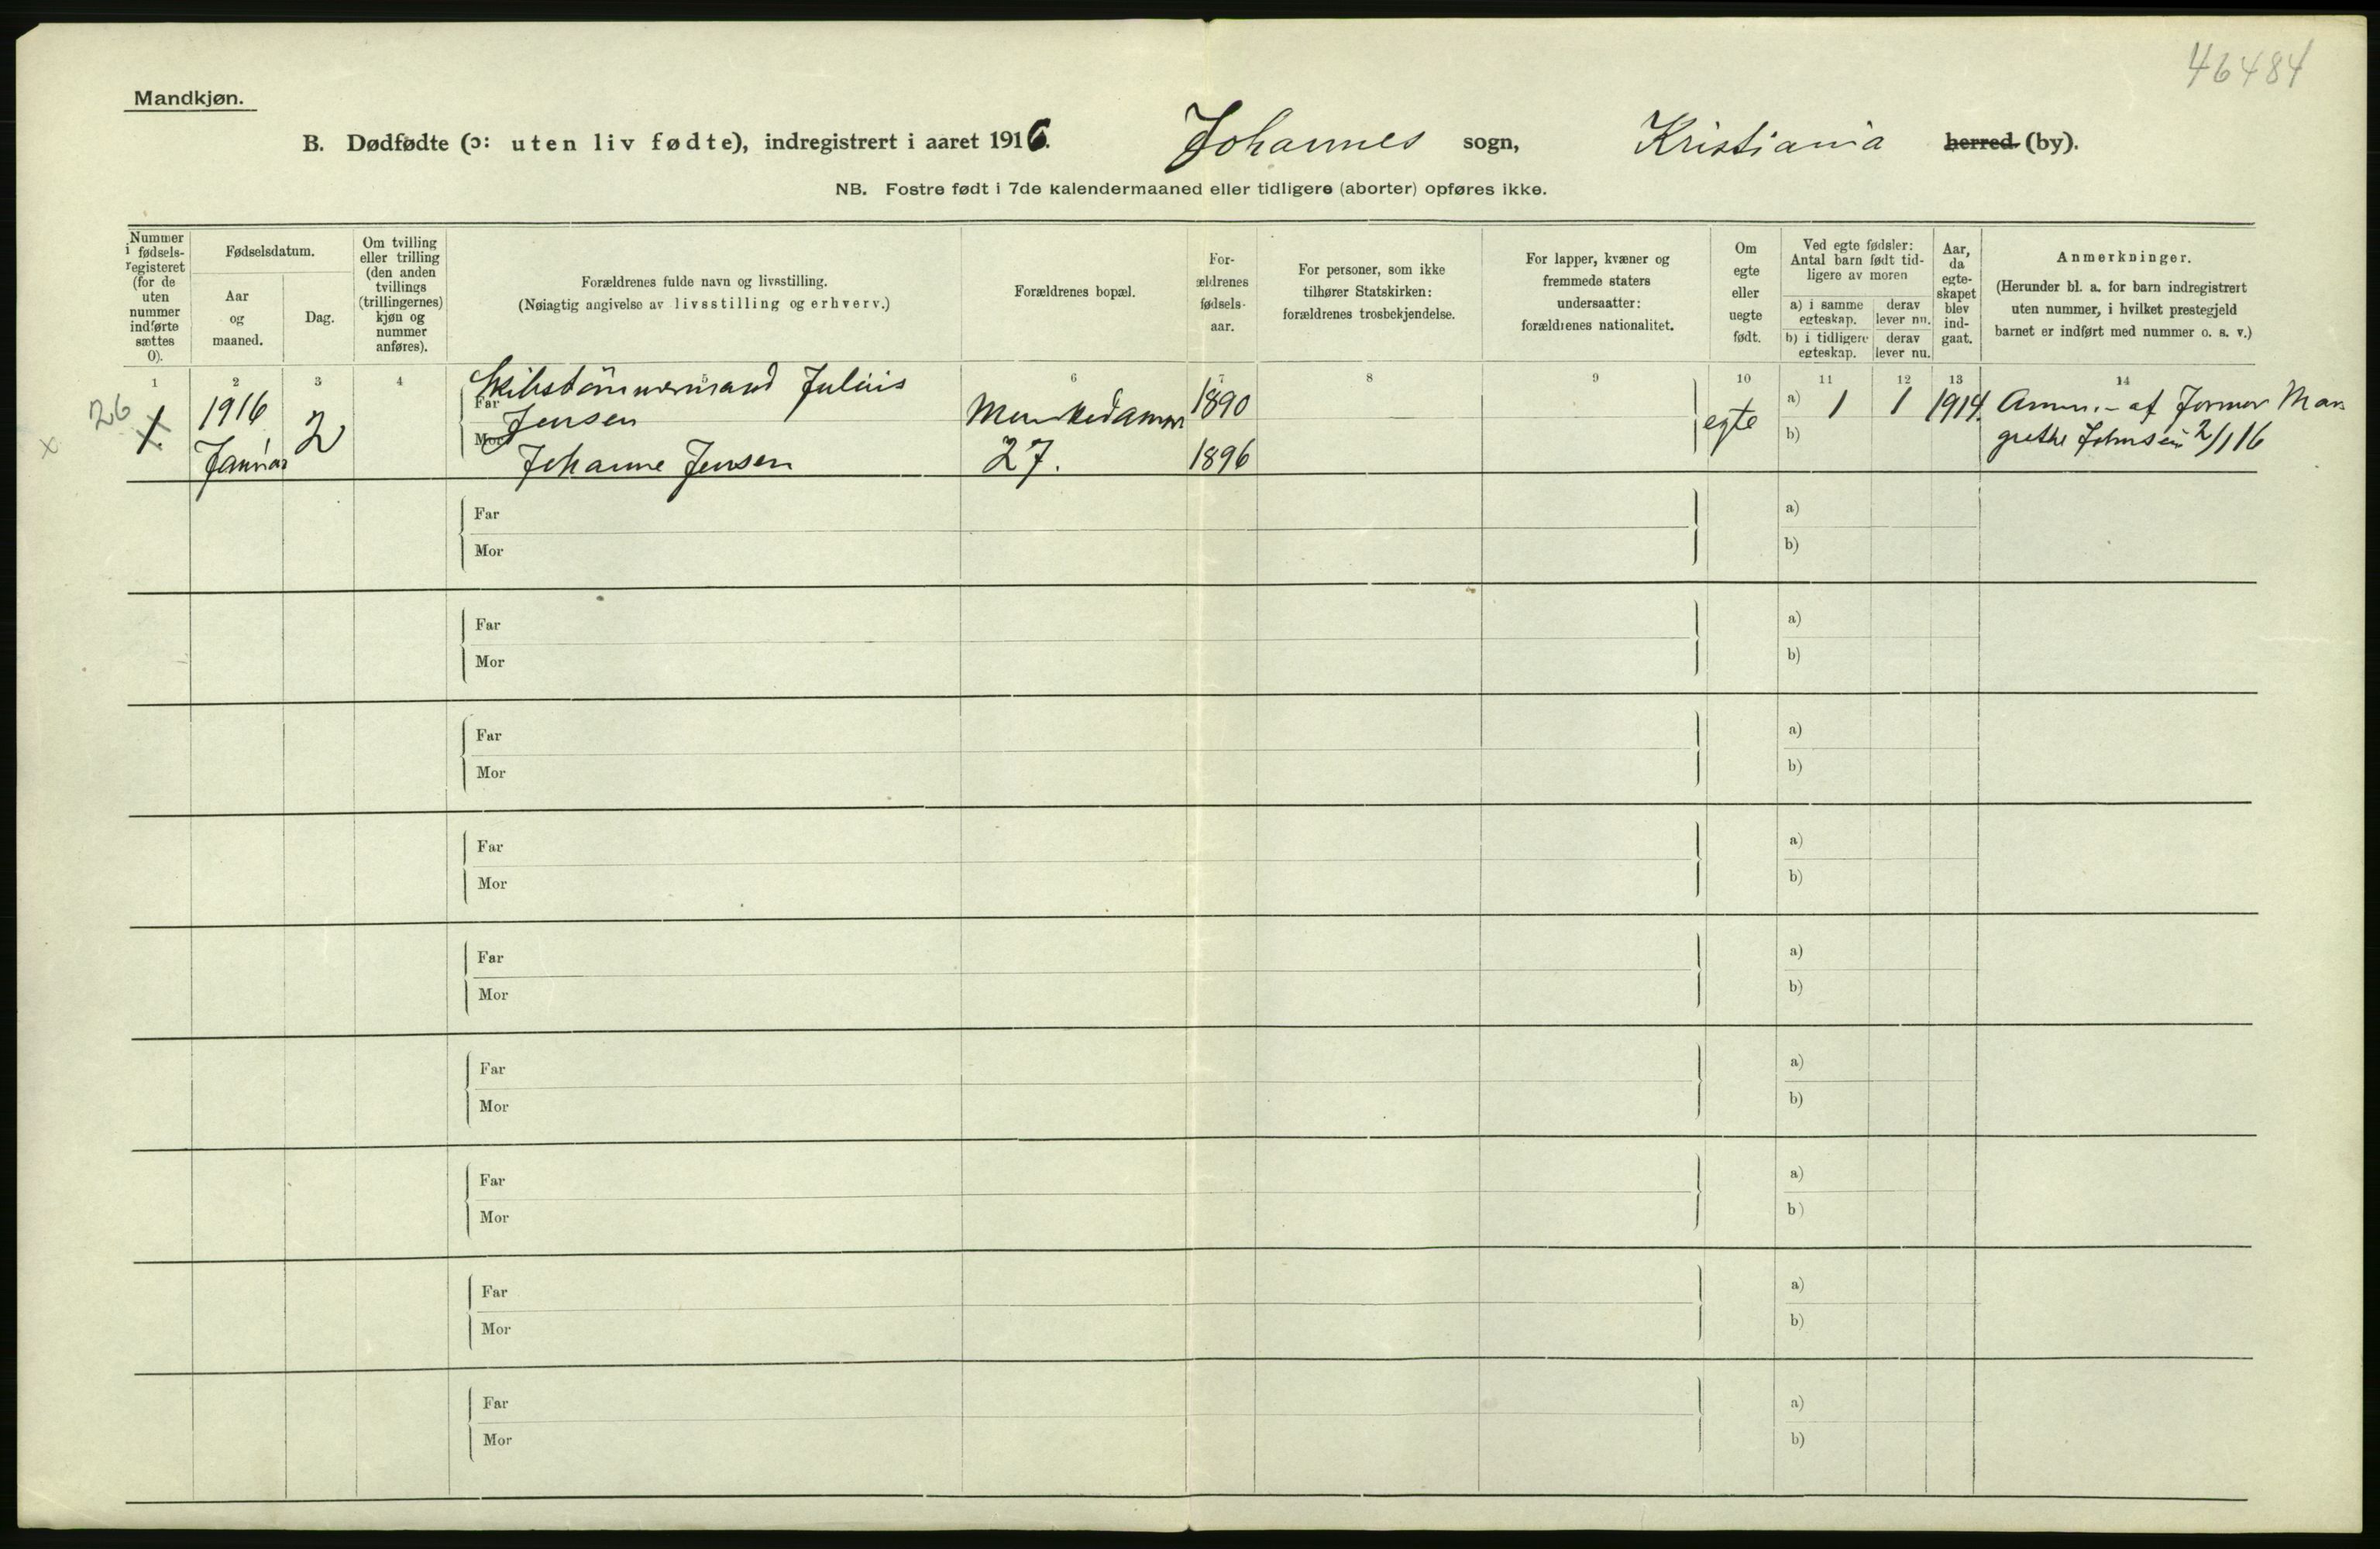 46484
Mandkjøn.
B. Dødfødte (ɔ: uten liv fødte), indregistrert i aaret 1916. Johannes sogn, Kristiania herred (by).
NB. Fostre født i 7de kalendermaaned eller tidligere (aborter) opføres ikke.
Nummer
i fødsels-
registeret
(for de
uten
nummer
indførte
sættes
0).
Fødselsdatum.
Aar
og
maaned.
Dag.
Om tvilling
eller trilling
(den anden
tvillings
(trillingernes)
kjøn og
nummer
anføres).
Forældrenes fulde navn og livsstilling.
(Nøiagtig angivelse av livsstilling og erhverv.)
Forældrenes bopæl.
For-
ældrenes
fødsels-
aar.
For personer, som ikke
tilhører Statskirken:
forældrenes trosbekjendelse.
For lapper, kvæner og
fremmede staters
undersaatter:
forældrenes nationalitet.
Om
egte
eller
uegte
født.
Ved egte fødsler:
Antal barn født tid-
ligere av moren
a) i samme
egteskap.
derav
lever nu.
b) i tidligere
egteskap.
derav
lever nu.
Aar,
da
egte-
skapet
blev
ind-
gaat.
Anmerkninger.
(Herunder bl. a. for barn indregistrert
uten nummer, i hvilket prestegjeld
barnet er indført med nummer o. s. v.)
1 2 3 4 5 6 7 8 9 10 11 12 13 14
26
x
1.
1916
Januar
2
Far Skibstømmermand Julius
Jensen
Mor
Johanne Jensen
Munkedamsv
27.
1890
1896
egte
a) 1 1 1914.
b)
Anm. af Jormor Mar
grethe Johnsen 2/1 16
Far a)
Mor b)
Far a)
Mor b)
Far a)
Mor b)
Far a)
Mor b)
Far a)
Mor b)
Far a)
Mor b)
Far a)
Mor b)
Far a)
Mor b)
Far a)
Mor b)